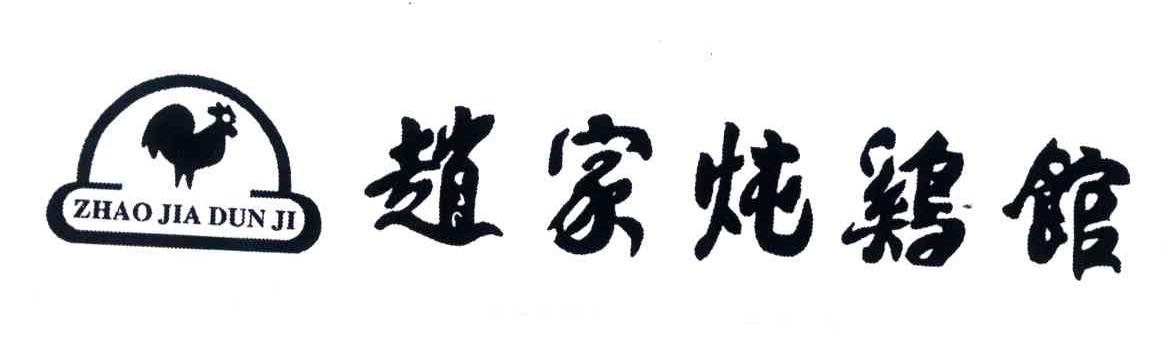 ZHAO JIA DUN JI
趙家炖鷄館